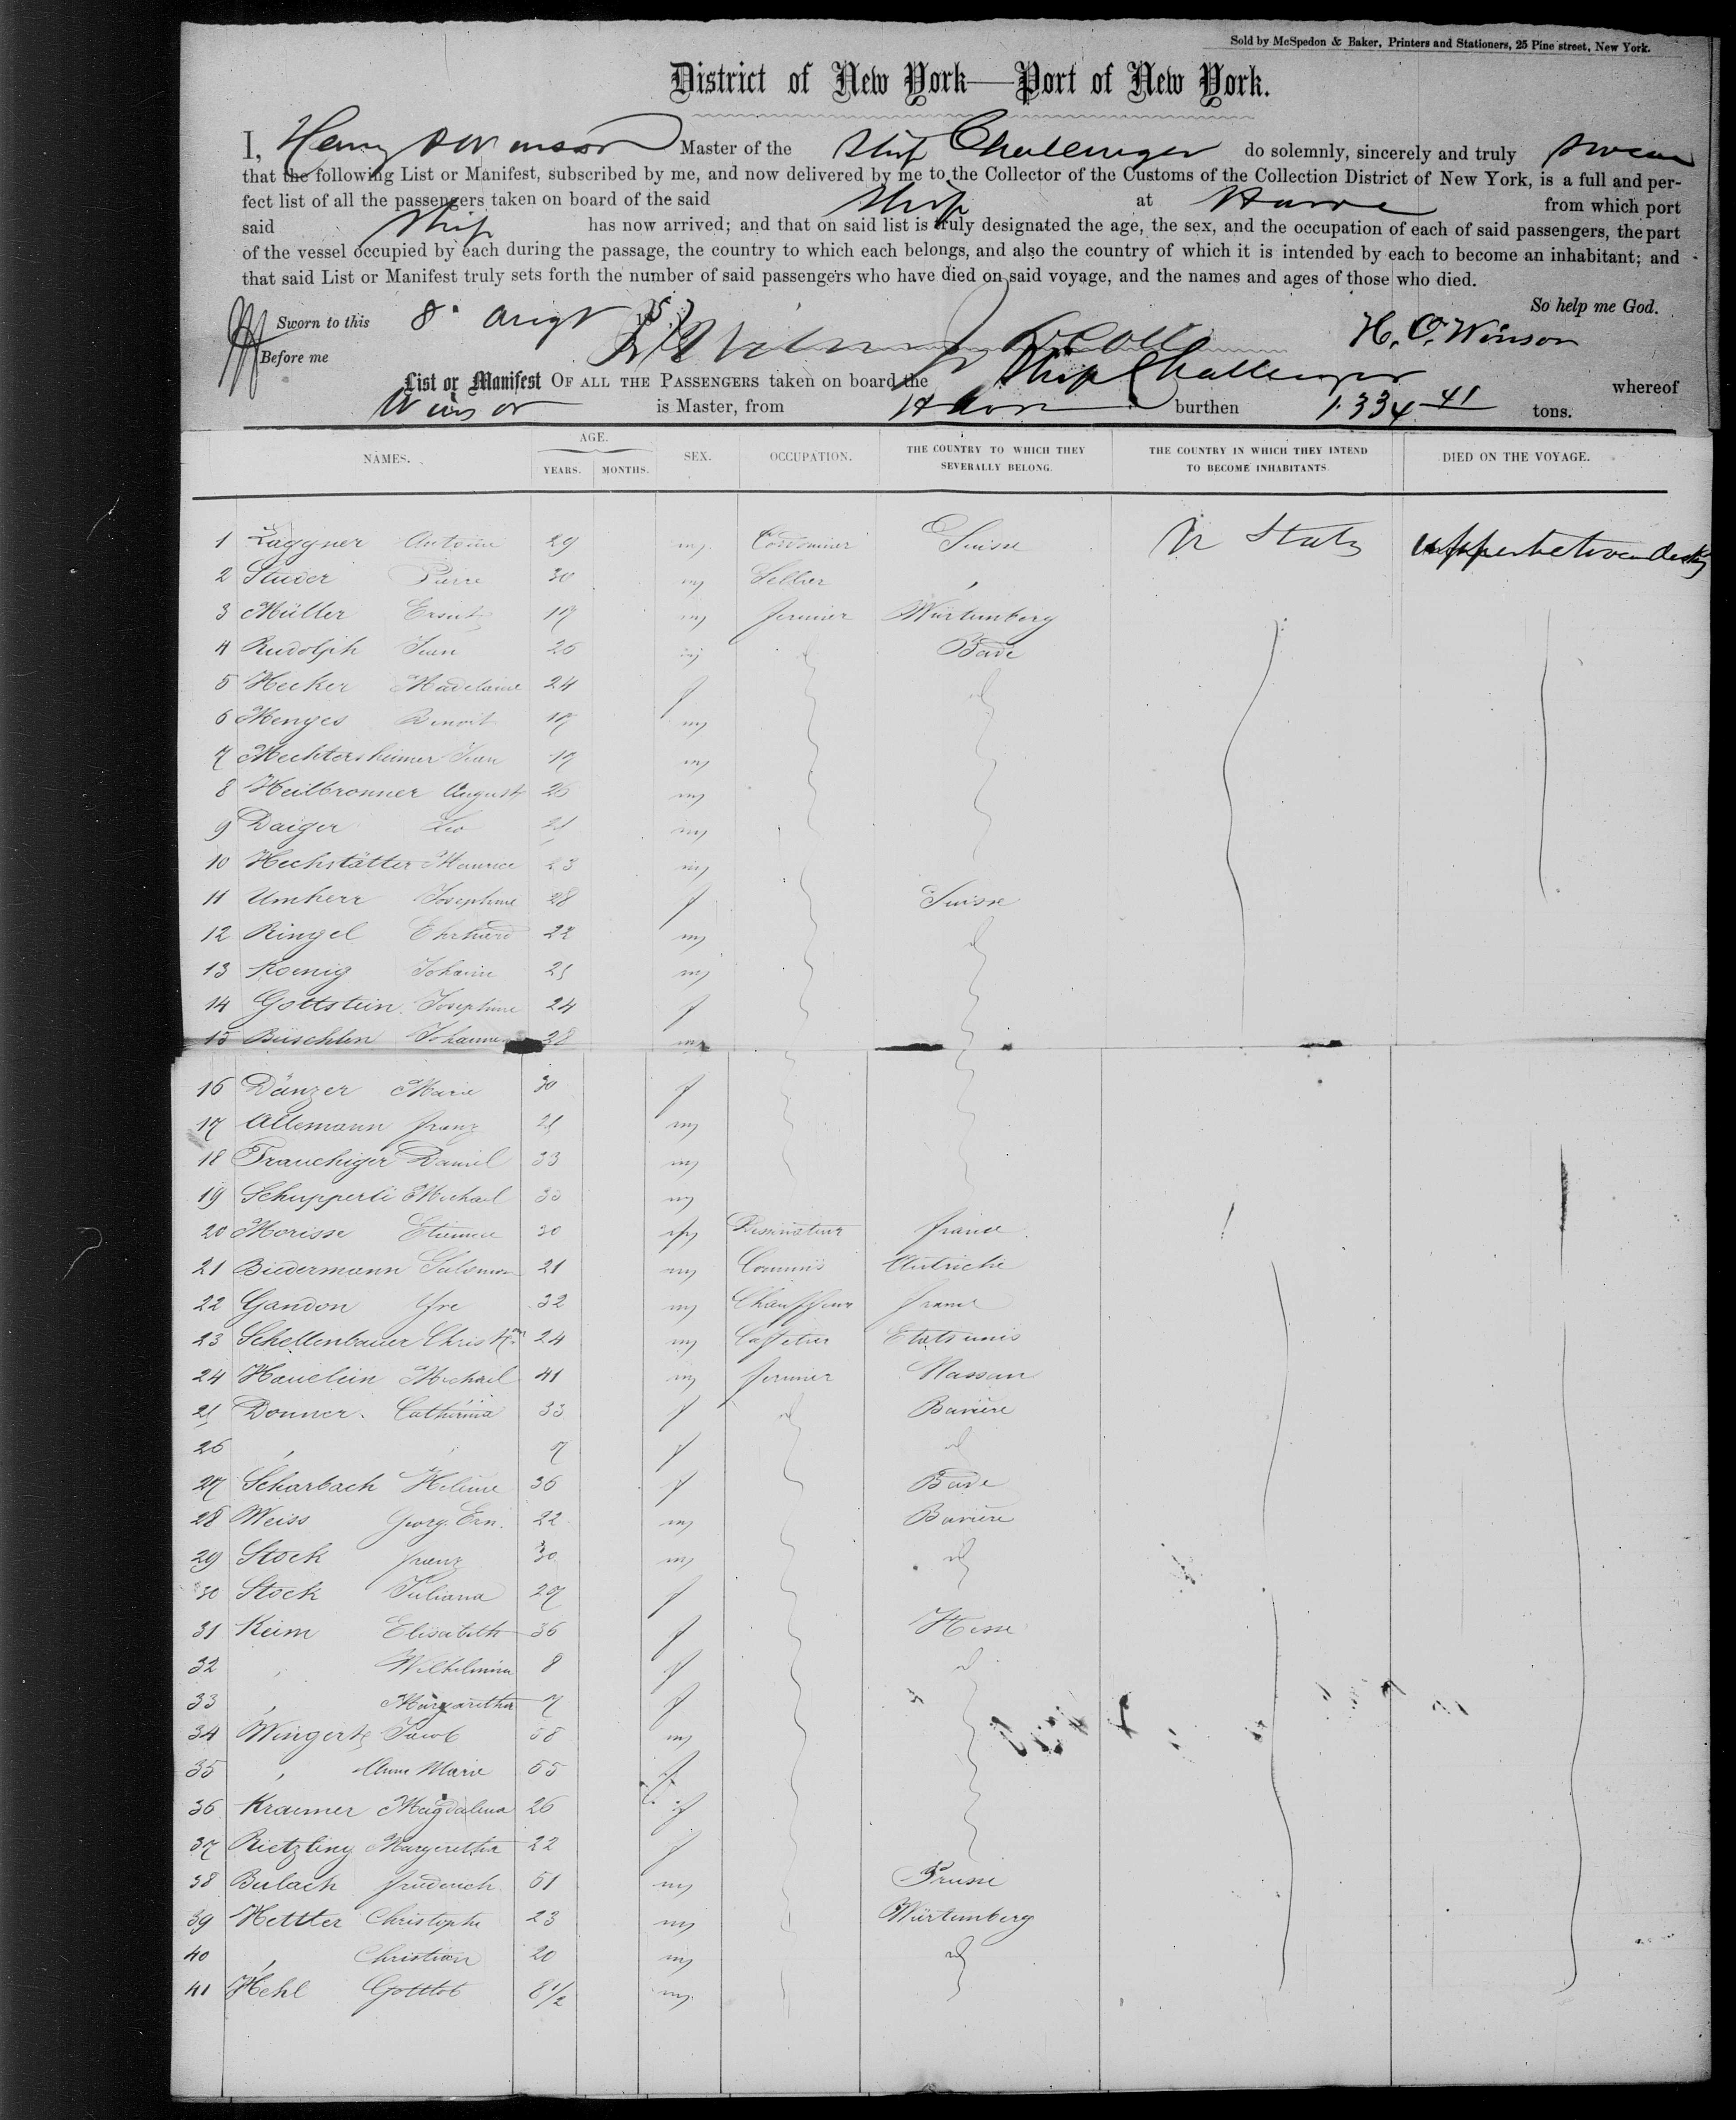 Sold by McSpedon & Baker, Printers and Stationers, 25 Pine street, New York.
District of New York—Port of New York.
I, Henry Winsor Master of the Ship Challenger do solemnly, sincerely and truly swear
that the following List or Manifest, subscribed by me, and now delivered by me to the Collector of the Customs of the Collection District of New York, is a full and per-
fect list of all the passengers taken on board of the said Ship at Havre from which port
said Ship has now arrived; and that on said list is truly designated the age, the sex, and the occupation of each of said passengers, the part
of the vessel occupied by each during the passage, the country to which each belongs, and also the country of which it is intended by each to become an inhabitant; and
that said List or Manifest truly sets forth the number of said passengers who have died on said voyage, and the names and ages of those who died.
So help me God.
Sworn to this 8 Augt
H. O. Winson
Before me
List or Manifest OF ALL THE PASSENGERS taken on board the Ship Challenger whereof
Winsor is Master, from Havre burthen 1334 41 tons.
NAMES. AGE. YEARS. MONTHS. SEX. OCCUPATION. THE COUNTRY TO WHICH THEY SEVERALLY BELONG. THE COUNTRY IN WHICH THEY INTEND TO BECOME INHABITANTS. DIED ON THE VOYAGE.
1 Laggner Antoine 29 m Cordonnier Suisse U States upper between decks
2 Studer Pierre 30 m Sellier
3 Müller Ernst 17 m fermier Würtemberg
4 Rudolph Jean 26 m Bade
5 Hecker Madelaine 24 f id
6 Menges Benoit 17 m
7 Mechtersheimer Jean 17 m
8 Heilbronner August 26 m
9 Daiger Leo 25 m
10 Hechstätter Maurice 23 m
11 Umherr Josephine 28 f Suisse
12 Ringel Ehrhard 22 m id
13 Koenig Johann 25 m
14 Gottstein Josephine 24 f
15 Büschlen Johannes 38 m
16 Dänzer Marie 30 f
17 Allemann franz 25 m
18 Trauchiger Daniel 33 m
19 Schupperli Michael 35 m
20 Morisse Etienne 30 m Dessinateur france
21 Biedermann Salomon 21 m Commis Autriche
22 Gandon Yre 32 m Chauffeur france
23 Schellenbauer Christn 24 m Etats unis
24 Hauelein Michael 41 m fermier Nassau
25 Donner Catharina 33 f id Bavière
26 " " 7 f id
27 Scharbach Helene 36 f Bade
28 Weiss Georg. Ern. 22 m Bavière
29 Stock franz 30 m id
30 Stock Juliana 27 f
31 Keim Elisabeth 36 f Hesse
32 " Wilhelmina 8 f id
33 " Margaretha 7 f
34 Wingertz Jacob 58 m
35 " Anna Marie 55 f
36 Kraemer Magdalena 26 f
37 Rietzling Margeretha 22 f
38 Bulach friederich 51 m Prusse
39 Hettler Christophe 23 m Würtemberg
40 " Christian 20 m id
41 Hehl Gottlob 8 1/2 m